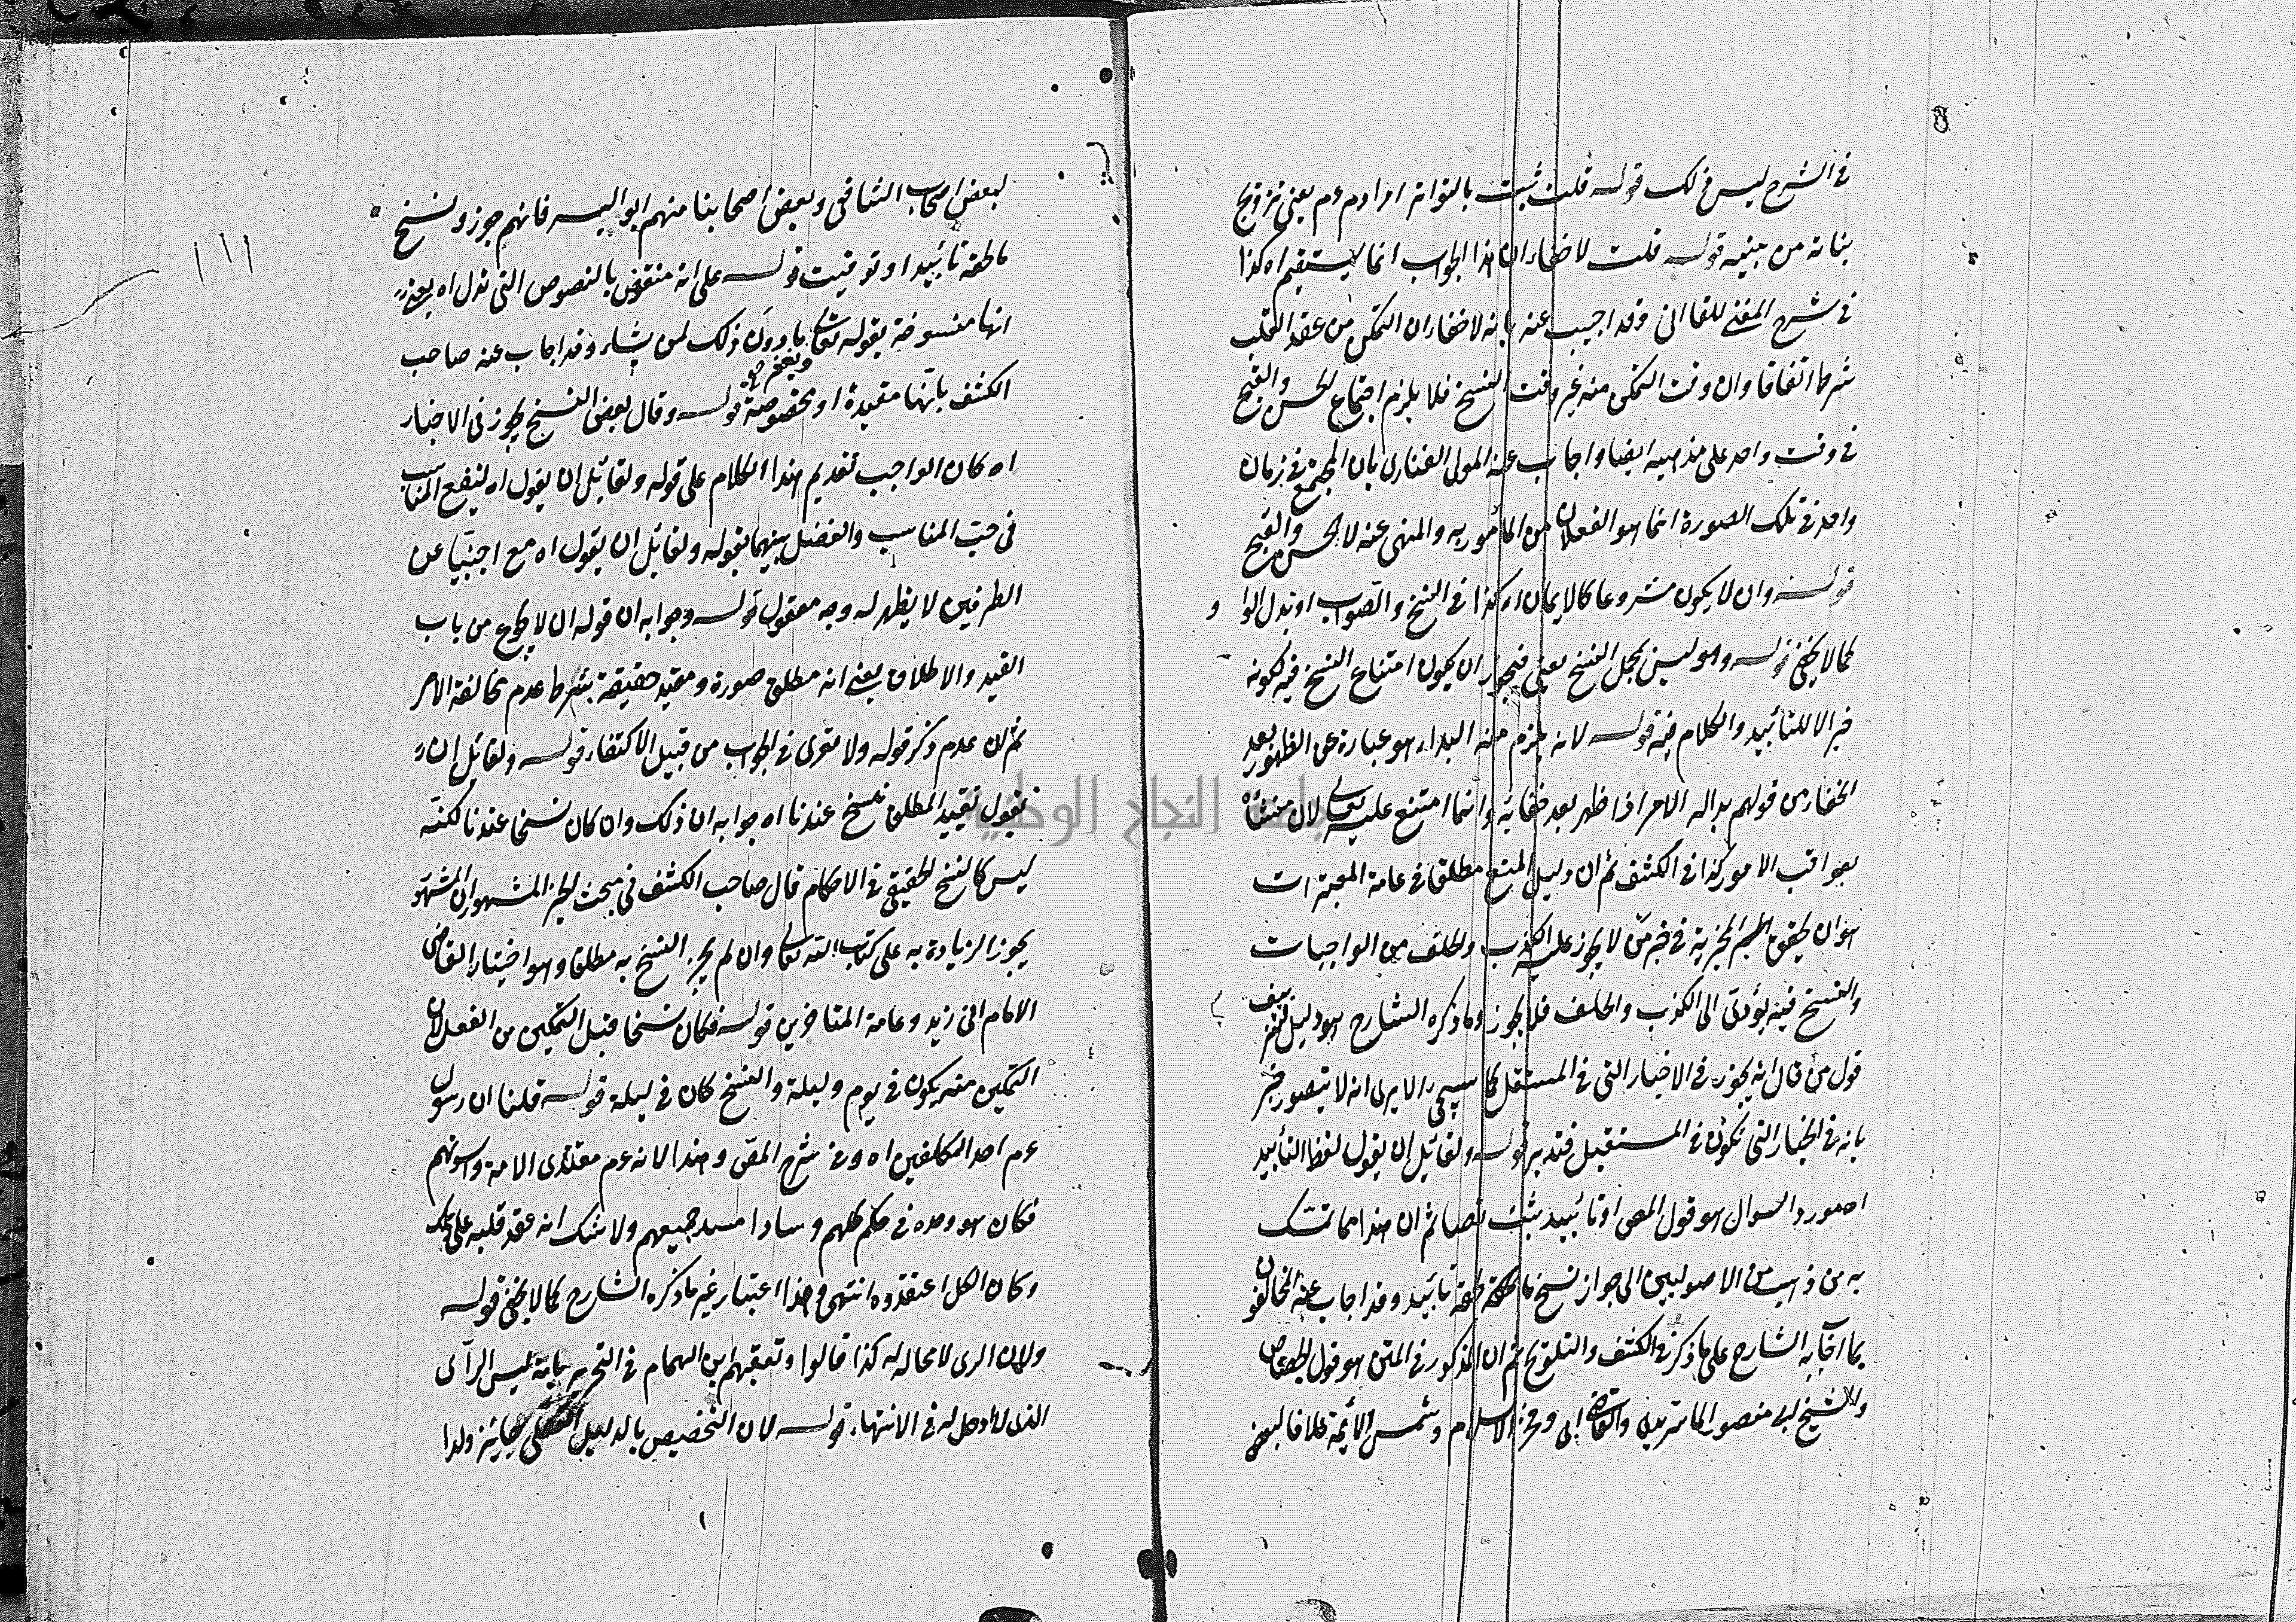 في الشرح ليس في لك قوله قلت ثبت بالتواتر امرادم عم يعني تزويج
بناته من بنيه قوله قلت لا خفاء ان هذا الجواب انما لا يستقيم اه كذا
في شرح المغني للقاآني وقد اجيب عنه بانه لا خفاء ان التمكن من عقد القلب
شرط اتفاقا وان وقت التمكن منه غير وقت النسخ فلا يلزم اجتماع الحسن والقبح
في وقت واحد على مذهبه ايضا واجاب عنه المولى الفناري بان المجتمع في زمان
واحد في تلك الصورة انما هو الفعلان من المأمور به والمنهي عنه لا الحسن والقبح
قوله وان لا يكون مشروعا كالايمان اه كذا في النسخ والصواب او بدل الواو
كما لا يخفى قوله وهو ليس بمحل النسخ يعني فيجوز ان يكون امتناع النسخ فيه لكونه
خبرا لا للتأبيد والكلام فيه قوله لانه يلزم منه البداء هو عبارة عن الظهور بعد
الخفاء من قولهم بدا له الامر اذا ظهر بعد خفائه وانما امتنع عليه تعالى لان منشأه
بعواقب الامور كذا في الكشف ثم ان دليل المنع مطلقا في عامة المعتبرات
هو ان تحقق المخبر به في خبر من لا يجوز عليه الكذب والخلف من الواجبات
والنسخ فيه يؤدي الى الكذب والخلف فلا يجوز وما ذكره الشارح هو دليل تزييف
قول من قال انه يجوز في الاخبار التي في المستقبل كما سيجئ الا يرى انه لا يتصور خبر
بانه في الخبار التي تكون في المستقبل فتدبر قوله ولقائل ان يقول لفظ التأبيد
اه مورد السوال هو قول المص او تأبيد يثبت نصا ثم ان هذا مما تمسك
به من ذهب من الاصوليين الى جواز نسخ ما لحقه تأبيد وقد اجاب عنه المخالفون
بما اجاب به الشارح على ما ذكر في الكشف والتلويح ثم ان المذكور في المتن هو قول الجصاص
والشيخ ابي منصور الماتريدي والقاضي ابي وفخر الاسلام وشمس الائمة خلافا لبعض
لبعض اصحاب الشافعي وبعض اصحابنا منهم ابو اليسر فانهم جوزو نسخ
ما لحقه تأبيد او توقيت قوله على انه منتقض بالنصوص التي تدل اه يعني
انها منسوخة بقوله تعالى ويغفر ما دون ذلك لمن يشاء وقد اجاب عنه صاحب
الكشف بانها مقيدة او مخصوصة قوله وقال بعض النسخ يجوز في الاخبار
اه كان الواجب تقديم هذا الكلام على قوله ولقائل ان يقول اه ليقع المناسب
في جنب المناسب والفصل بينهما بقوله ولقائل ان يقول اه مع اجنبيا عن
الطرفين لا يظهر له وجه معقول قوله وجوابه ان قوله ان لا تجوع من باب
القيد والاطلاق يعني انه مطلق صورة ومقيد حقيقة بشرط عدم مخالفة الامر
ثم ان عدم ذكر قوله ولا تعرى في الجواب من قبيل الاكتفاء قوله ولقائل ان
يقول تقييد المطلق نسخ عندنا اه جوابه ان ذلك وان كان نسخا عندنا لكنه
ليس كالنسخ الحقيقي في الاحكام قال صاحب الكشف في مبحث الخبر المشهور ان المشهور
يجوز الزيادة به على كتاب الله تعالى وان لم يجز النسخ به مطلقا وهو اختيار القاضي
الامام ابي زيد وعامة المتاخرين قوله فكان نسخا قبل التمكين من الفعل لان
التمكين منه يكون في يوم وليلة والنسخ كان في ليلة قوله قلنا ان رسول
عم احد المكلفين اه وفي شرح المغني وهذا لانه عم مقتدى الامة واسوتهم
فكان هو وحده في حكم كلهم وسادا مسد جميعهم ولا شك انه عقد قلبه على ذلك
وكان الكل اعتقدوه انتهى وهذا اعتبار غير ما ذكره الشارح كما لا يخفى قوله
ولان الرى لا محال له كذا قالوا وتعقبهم ابن الهمام في التحرير بانه ليس الرأى
الذى لا دخل له في الانتهاء قوله لان التخصيص بالدليل العقلي جائز ولذا
جامعة النجاح الوطنية